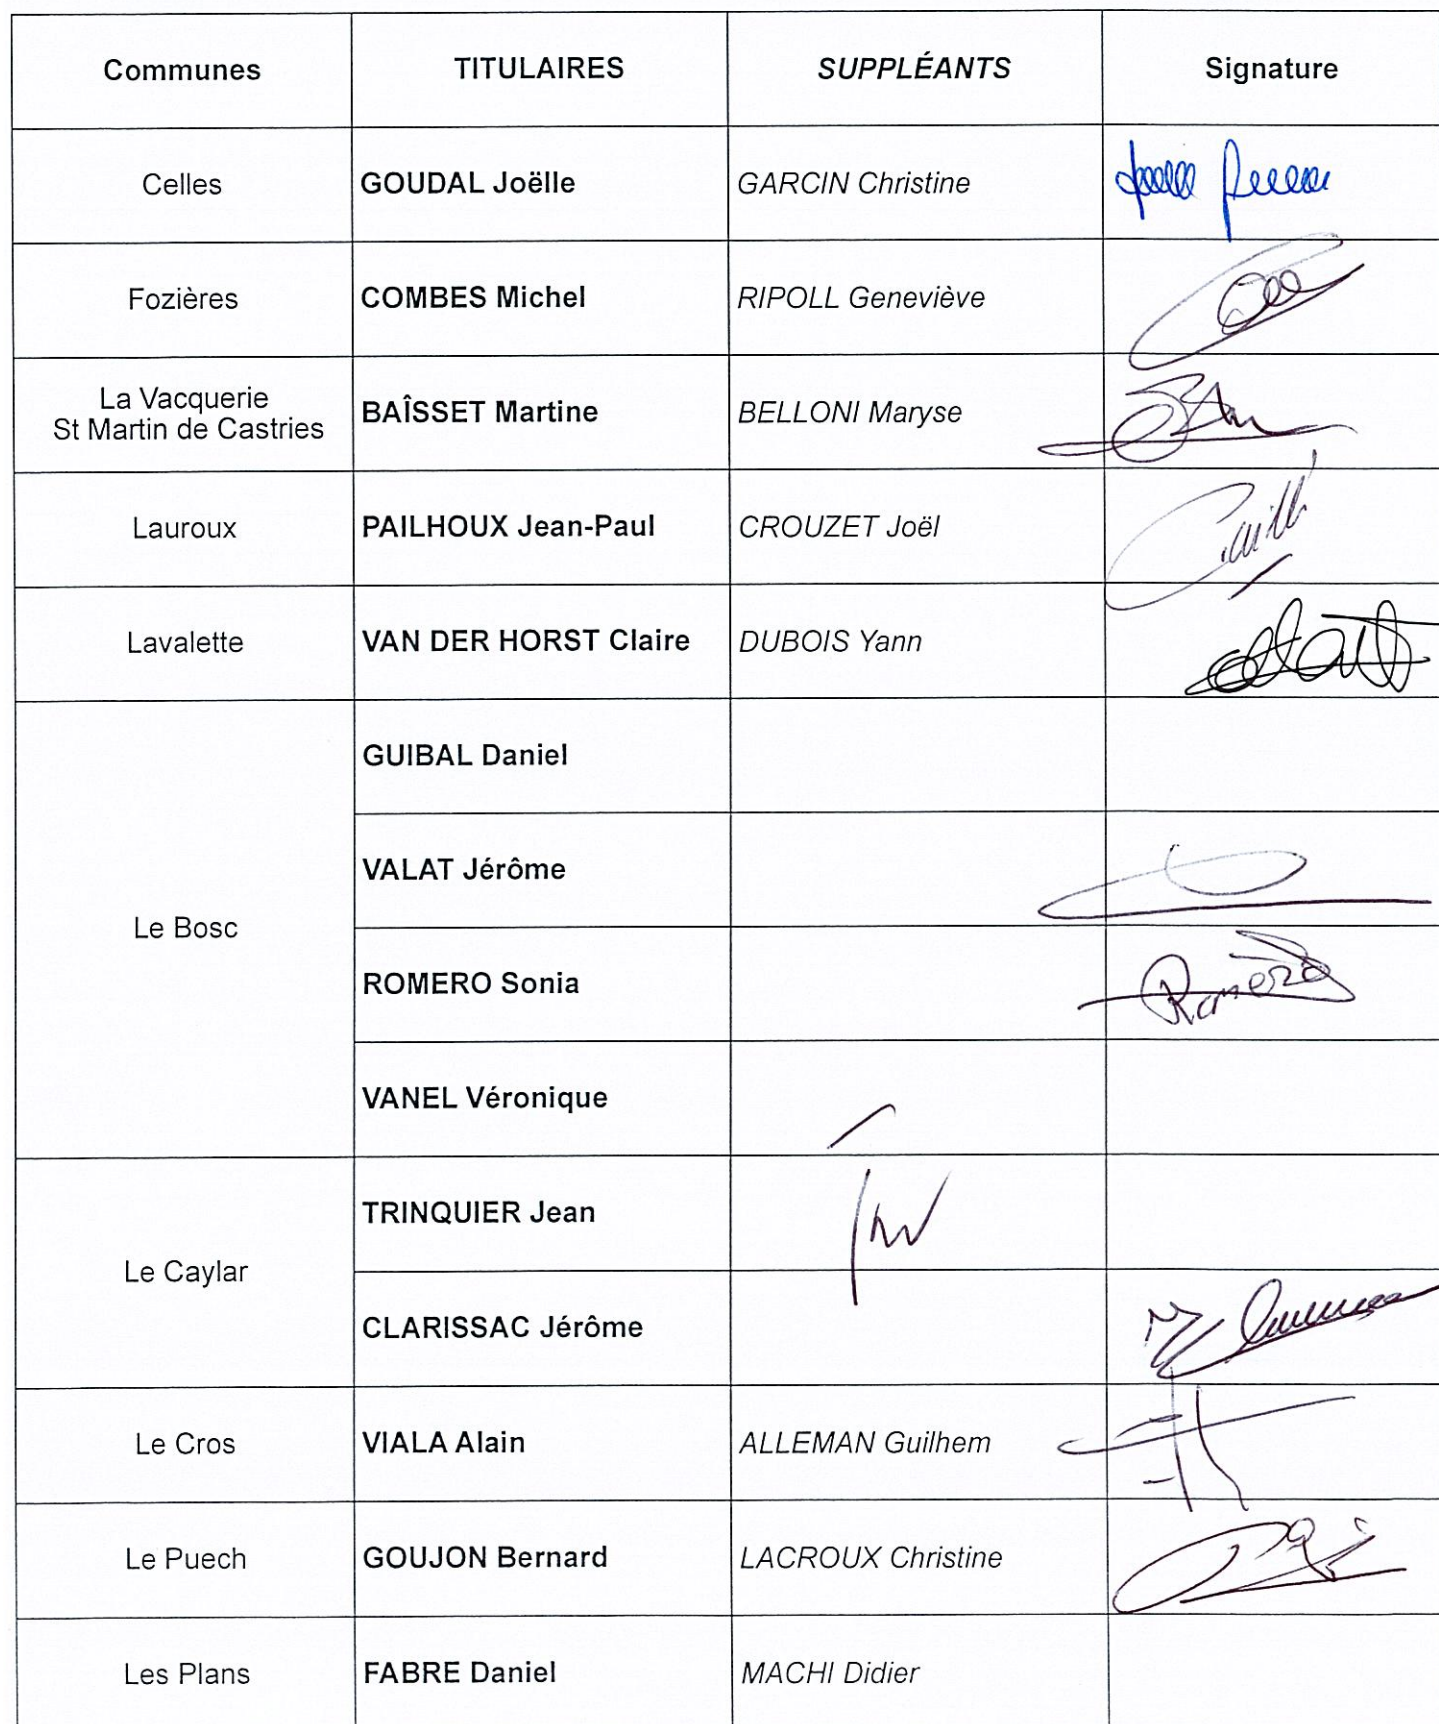 Communes TITULAIRES SUPPLÉANTS Signature
Celles GOUDAL Joëlle GARCIN Christine
Fozières COMBES Michel RIPOLL Geneviève
La Vacquerie
St Martin de Castries BAÎSSET Martine BELLONI Maryse
Lauroux PAILHOUX Jean-Paul CROUZET Joël
Lavalette VAN DER HORST Claire DUBOIS Yann
Le Bosc GUIBAL Daniel
VALAT Jérôme
ROMERO Sonia Romero
VANEL Véronique
Le Caylar TRINQUIER Jean
CLARISSAC Jérôme
Le Cros VIALA Alain ALLEMAN Guilhem
Le Puech GOUJON Bernard LACROUX Christine
Les Plans FABRE Daniel MACHI Didier